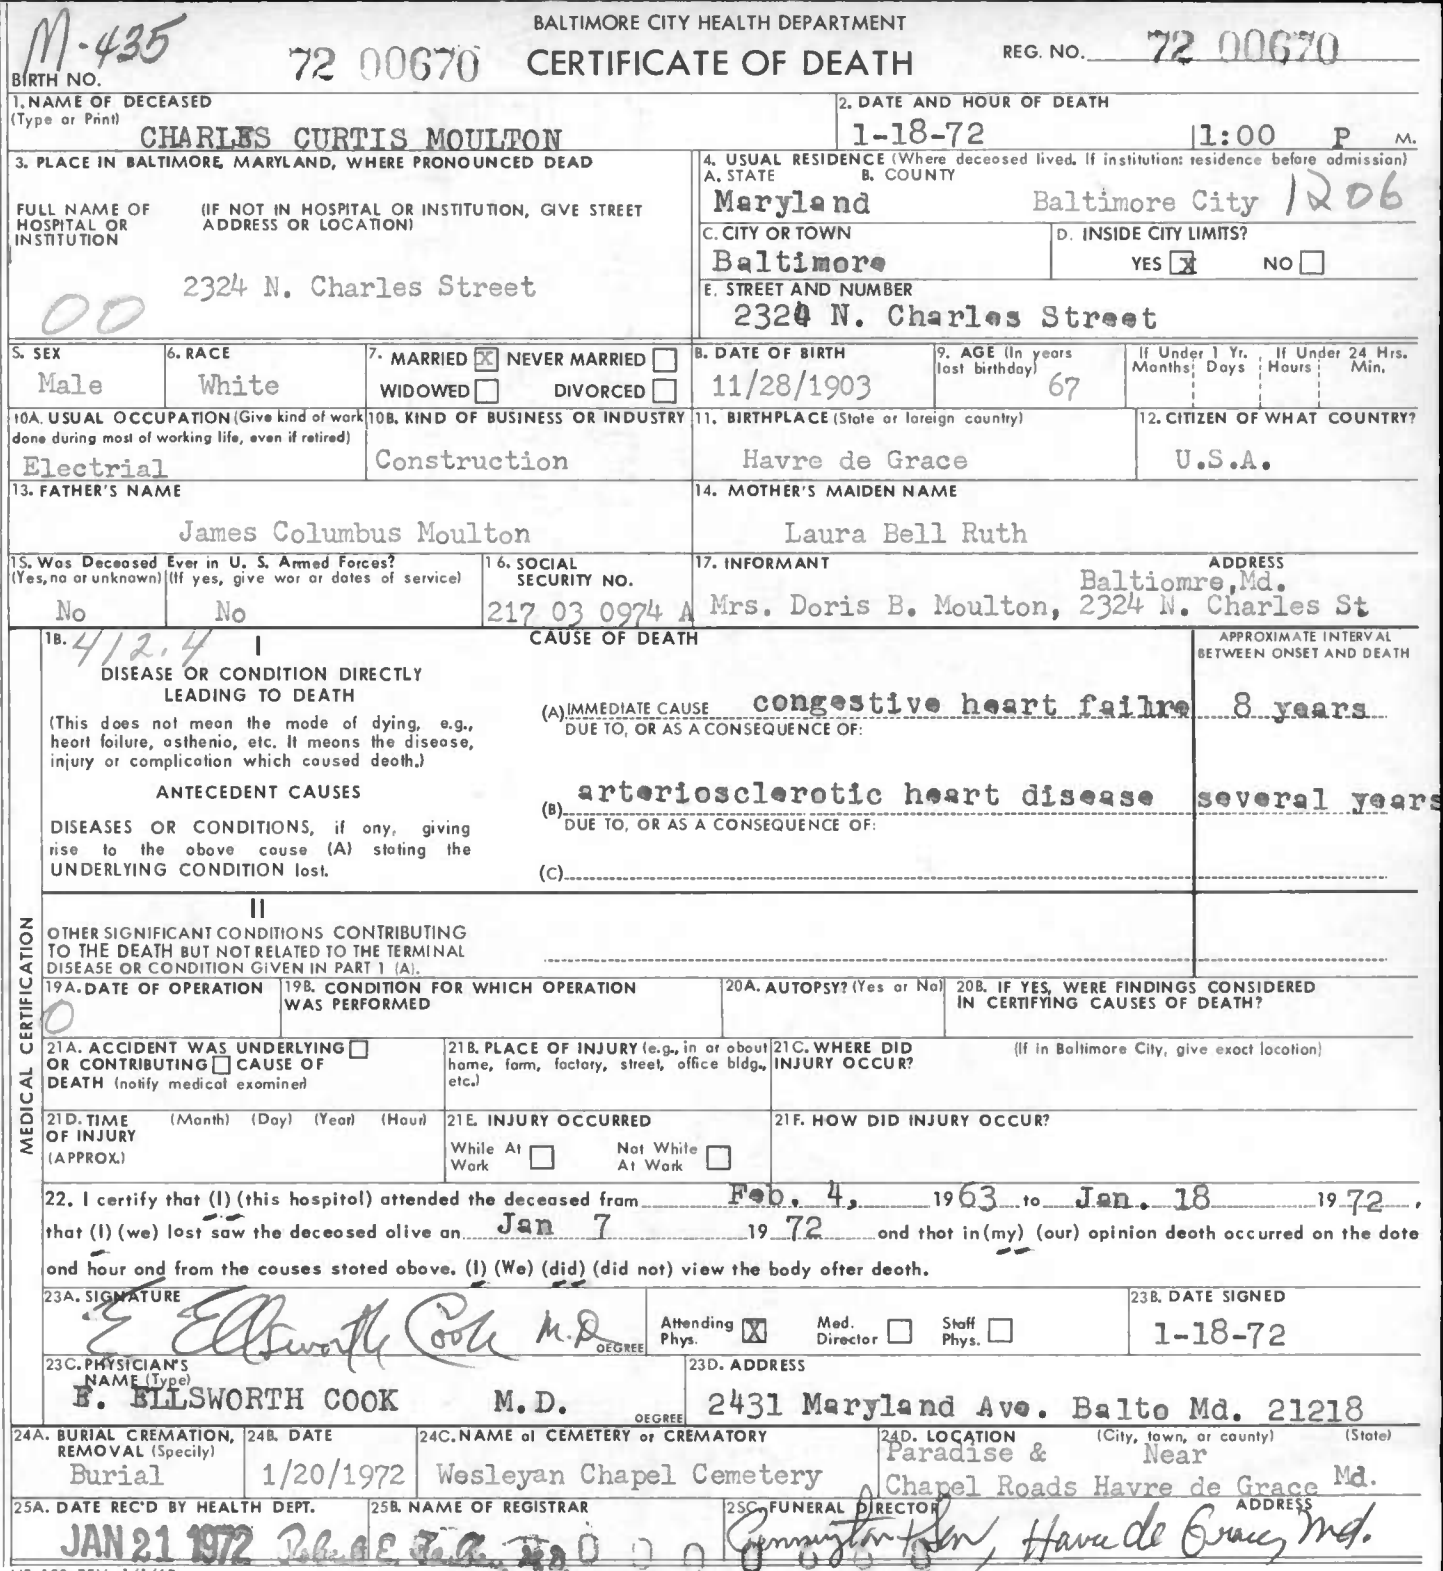 M-435
BIRTH NO.
72 00670
BALTIMORE CITY HEALTH DEPARTMENT
CERTIFICATE OF DEATH
REG. NO. 72 00670
1. NAME OF DECEASED
(Type or Print)
CHARLES CURTIS MOULTON
2. DATE AND HOUR OF DEATH
1-18-72 1:00 P M.
3. PLACE IN BALTIMORE, MARYLAND, WHERE PRONOUNCED DEAD
FULL NAME OF HOSPITAL OR INSTITUTION
(IF NOT IN HOSPITAL OR INSTITUTION, GIVE STREET ADDRESS OR LOCATION)
2324 N. Charles Street
00
4. USUAL RESIDENCE (Where deceased lived. If institution: residence before admission)
A. STATE B. COUNTY
Maryland Baltimore City 1206
C. CITY OR TOWN
Baltimore
D. INSIDE CITY LIMITS?
YES X NO
E. STREET AND NUMBER
2324 N. Charles Street
5. SEX
Male
6. RACE
White
7. MARRIED X NEVER MARRIED
WIDOWED DIVORCED
8. DATE OF BIRTH
11/28/1903
9. AGE (In years last birthday)
67
If Under 1 Yr. If Under 24 Hrs.
Months Days Hours Min.
10A. USUAL OCCUPATION (Give kind of work done during most of working life, even if retired)
Electrial
10B. KIND OF BUSINESS OR INDUSTRY
Construction
11. BIRTHPLACE (State or foreign country)
Havre de Grace
12. CITIZEN OF WHAT COUNTRY?
U.S.A.
13. FATHER'S NAME
James Columbus Moulton
14. MOTHER'S MAIDEN NAME
Laura Bell Ruth
15. Was Deceased Ever in U. S. Armed Forces?
(Yes, no or unknown) (If yes, give war or dates of service)
No No
16. SOCIAL SECURITY NO.
217 03 0974 A
17. INFORMANT ADDRESS
Baltiomre,Md.
Mrs. Doris B. Moulton, 2324 N. Charles St
MEDICAL CERTIFICATION
18. 412.4
I
DISEASE OR CONDITION DIRECTLY
LEADING TO DEATH
(This does not mean the mode of dying, e.g.,
heart failure, asthenia, etc. It means the disease,
injury or complication which caused death.)
ANTECEDENT CAUSES
DISEASES OR CONDITIONS, if any, giving
rise to the above cause (A) stating the
UNDERLYING CONDITION last.
CAUSE OF DEATH
APPROXIMATE INTERVAL
BETWEEN ONSET AND DEATH
(A) IMMEDIATE CAUSE congestive heart failre 8 years
DUE TO, OR AS A CONSEQUENCE OF:
(B) arteriosclerotic heart disease several years
DUE TO, OR AS A CONSEQUENCE OF:
(C)
II
OTHER SIGNIFICANT CONDITIONS CONTRIBUTING
TO THE DEATH BUT NOT RELATED TO THE TERMINAL
DISEASE OR CONDITION GIVEN IN PART 1 (A).
19A. DATE OF OPERATION
0
19B. CONDITION FOR WHICH OPERATION WAS PERFORMED
20A. AUTOPSY? (Yes or No)
20B. IF YES, WERE FINDINGS CONSIDERED IN CERTIFYING CAUSES OF DEATH?
21A. ACCIDENT WAS UNDERLYING
OR CONTRIBUTING CAUSE OF
DEATH (notify medical examiner)
21B. PLACE OF INJURY (e.g., in or about home, farm, factory, street, office bldg., etc.)
21C. WHERE DID INJURY OCCUR?
(If in Baltimore City, give exact location)
21D. TIME OF INJURY (APPROX.)
(Month) (Day) (Year) (Hour)
21E. INJURY OCCURRED
While At Work Not While At Work
21F. HOW DID INJURY OCCUR?
22. I certify that (I) (this hospital) attended the deceased from Feb. 4, 1963 to Jan. 18 1972,
that (I) (we) last saw the deceased alive on Jan 7 1972 and that in (my) (our) opinion death occurred on the date
and hour and from the causes stated above. (I) (We) (did) (did not) view the body after death.
23A. SIGNATURE
E Ellsworth Cook M.D. DEGREE
Attending Phys. X Med. Director Staff Phys.
23B. DATE SIGNED
1-18-72
23C. PHYSICIAN'S NAME (Type)
E. ELLSWORTH COOK M.D. DEGREE
23D. ADDRESS
2431 Maryland Ave. Balto Md. 21218
24A. BURIAL CREMATION, REMOVAL (Specify)
Burial
24B. DATE
1/20/1972
24C. NAME of CEMETERY or CREMATORY
Wesleyan Chapel Cemetery
24D. LOCATION (City, town, or county) (State)
Paradise & Near
Chapel Roads Havre de Grace Md.
25A. DATE REC'D BY HEALTH DEPT.
JAN 21 1972
25B. NAME OF REGISTRAR
Robert E.
25C. FUNERAL DIRECTOR ADDRESS
Pennington & Son, Havre de Grace, Md.